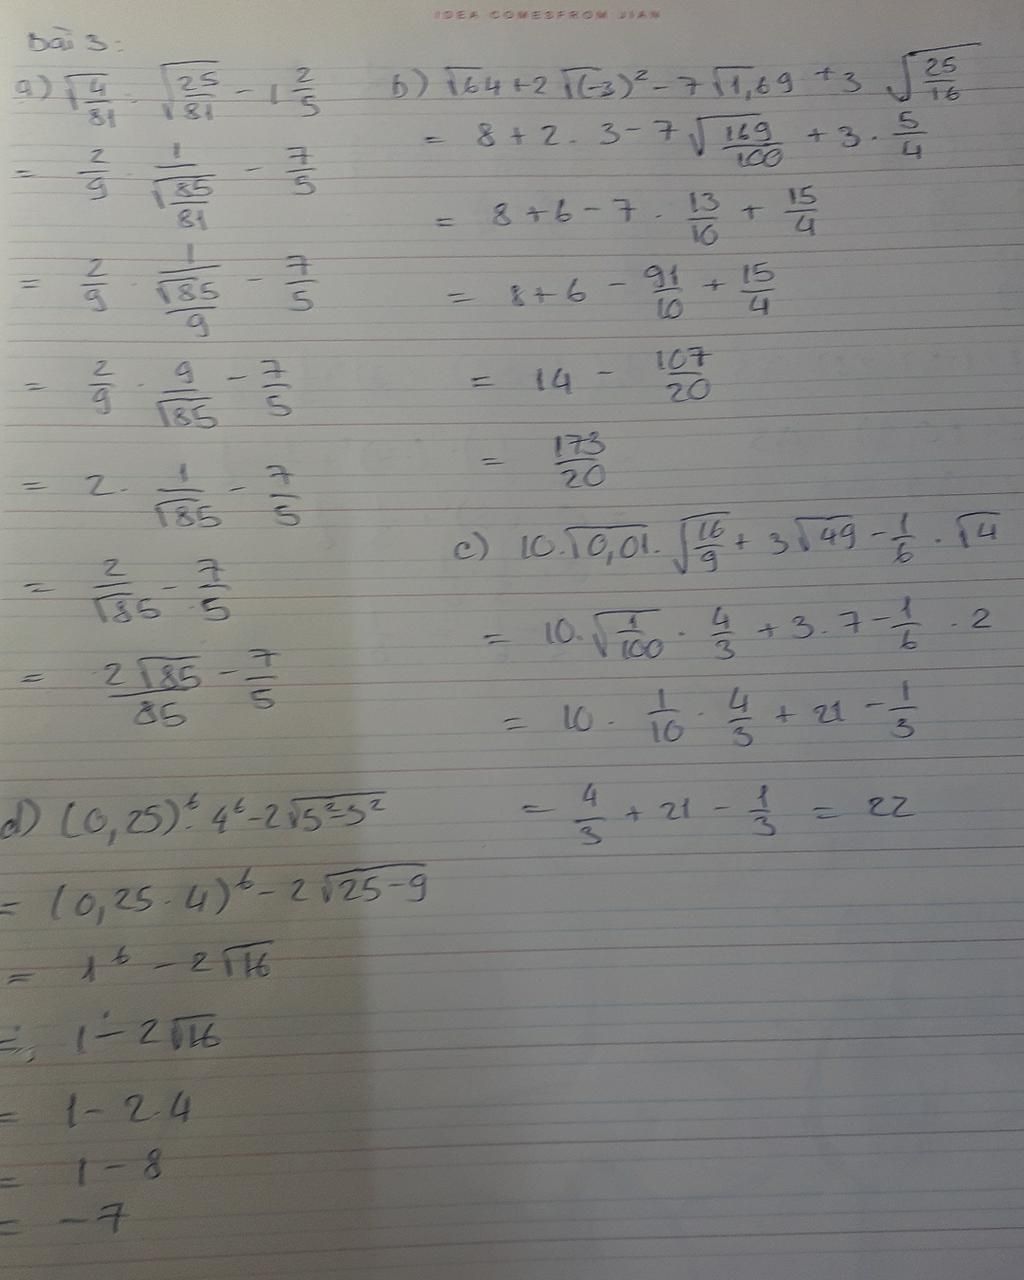 IDEA COMESFROM JIAN
Bài 3:
a) √(4/81) : √(25/81) - 1 2/5
= 2/9 · 1/√(85/81) - 7/5
= 2/9 · 1/(√85/9) - 7/5
= 2/9 · 9/√85 - 7/5
= 2 · 1/√85 - 7/5
= 2/√85 - 7/5
= 2√85/85 - 7/5
b) √64 + 2√(-3)² - 7√1,69 + 3√(25/16)
= 8 + 2 · 3 - 7√(169/100) + 3 · 5/4
= 8 + 6 - 7 · 13/10 + 15/4
= 8 + 6 - 91/10 + 15/4
= 14 - 107/20
= 173/20
c) 10.√0,01.√(16/9) + 3√49 - 1/6 · √4
= 10.√(1/100) · 4/3 + 3.7 - 1/6 . 2
= 10 · 1/10 · 4/3 + 21 - 1/3
= 4/3 + 21 - 1/3 = 22
d) (0,25)⁶ · 4⁶ - 2√(5²-3²)
= (0,25 . 4)⁶ - 2√(25-9)
= 1⁶ - 2√16
= 1 - 2√16
= 1 - 2.4
= 1 - 8
= -7